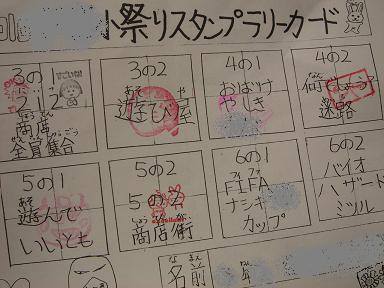 祭りスタンプラリーカード
3の1
212
商店
全員集合
3の2
遊び屋
4の1
おばけ
やしき
4の2
迷路
5の1
遊んで
いいとも
5の2
5の2
商店街
6の1
FIFA
ナシキ
カップ
6の2
バイオ
ハザード
ドツル
名前